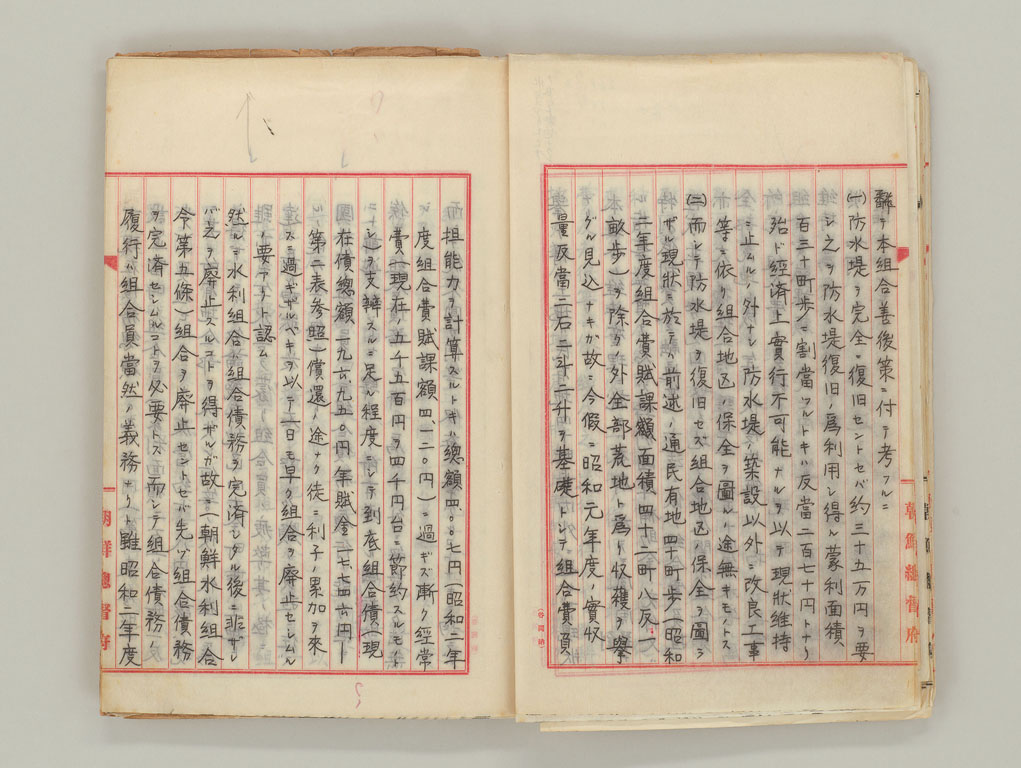 飜テ本組合善後策ニ付テ考フルニ
(一)防水堤ヲ完全ニ復旧セントセバ約三十五万円ヲ要
シ之ヲ防水堤復旧ノ為利用シ得ル蒙利面積
百三十町歩ニ割當ツルトキハ反當二百七十円トナリ
殆ド経済上實行不可能ナルヲ以テ現狀維持
ニ止ムルノ外ナシ防水堤ノ築設以外ニ改良工事
等ニ依リ組合地区ノ保全ヲ圖ルノ途無キモノトス
(二)而シテ防水堤ヲ復旧セズ組合地区ノ保全ヲ圖ラ
ザル現狀ニ於テハ前述ノ通民有地四十町歩(昭和
二年度組合費賦課額面積四十二町八反一
畝歩)ヲ除ク外全部荒地ト為リ收穫ヲ擧
グル見込ナキガ故ニ今假ニ昭和元年度ノ實收
量反當二石二斗二升ヲ基礎トシテ組合費負
朝鮮總督府
而擔能力ヲ計算スルトキハ總額四、〇〇七円(昭和二年
度組合費賦課額四、一二〇円)ニ過ギズ漸ク経常
費(現在ノ五千五百円ヲ四千円台ニ節約スルモノト
シ)ヲ支辨スルニ足ル程度ニシテ到底組合債(現
在債總額一九六、九五〇円年賦金一七、七四六円
第二表参照)償還ノ途ナク徒ニ利子ノ累加ヲ來
スニ過ギザルベキヲ以テ一日モ早ク組合ヲ廢止セシムル
ノ要アリト認ム
然ルニ水利組合ハ組合債務ヲ完済シタル後ニ非ザレ
バ之ヲ廢止スルコトヲ得ザルガ故ニ(朝鮮水利組合
令第五條)組合ヲ廢止セントセバ先ヅ組合債務
ヲ完済セシムルコトヲ必要トス而シテ組合債務ノ
履行ハ組合員當然ノ義務ナリト雖昭和二年度
朝鮮總督府